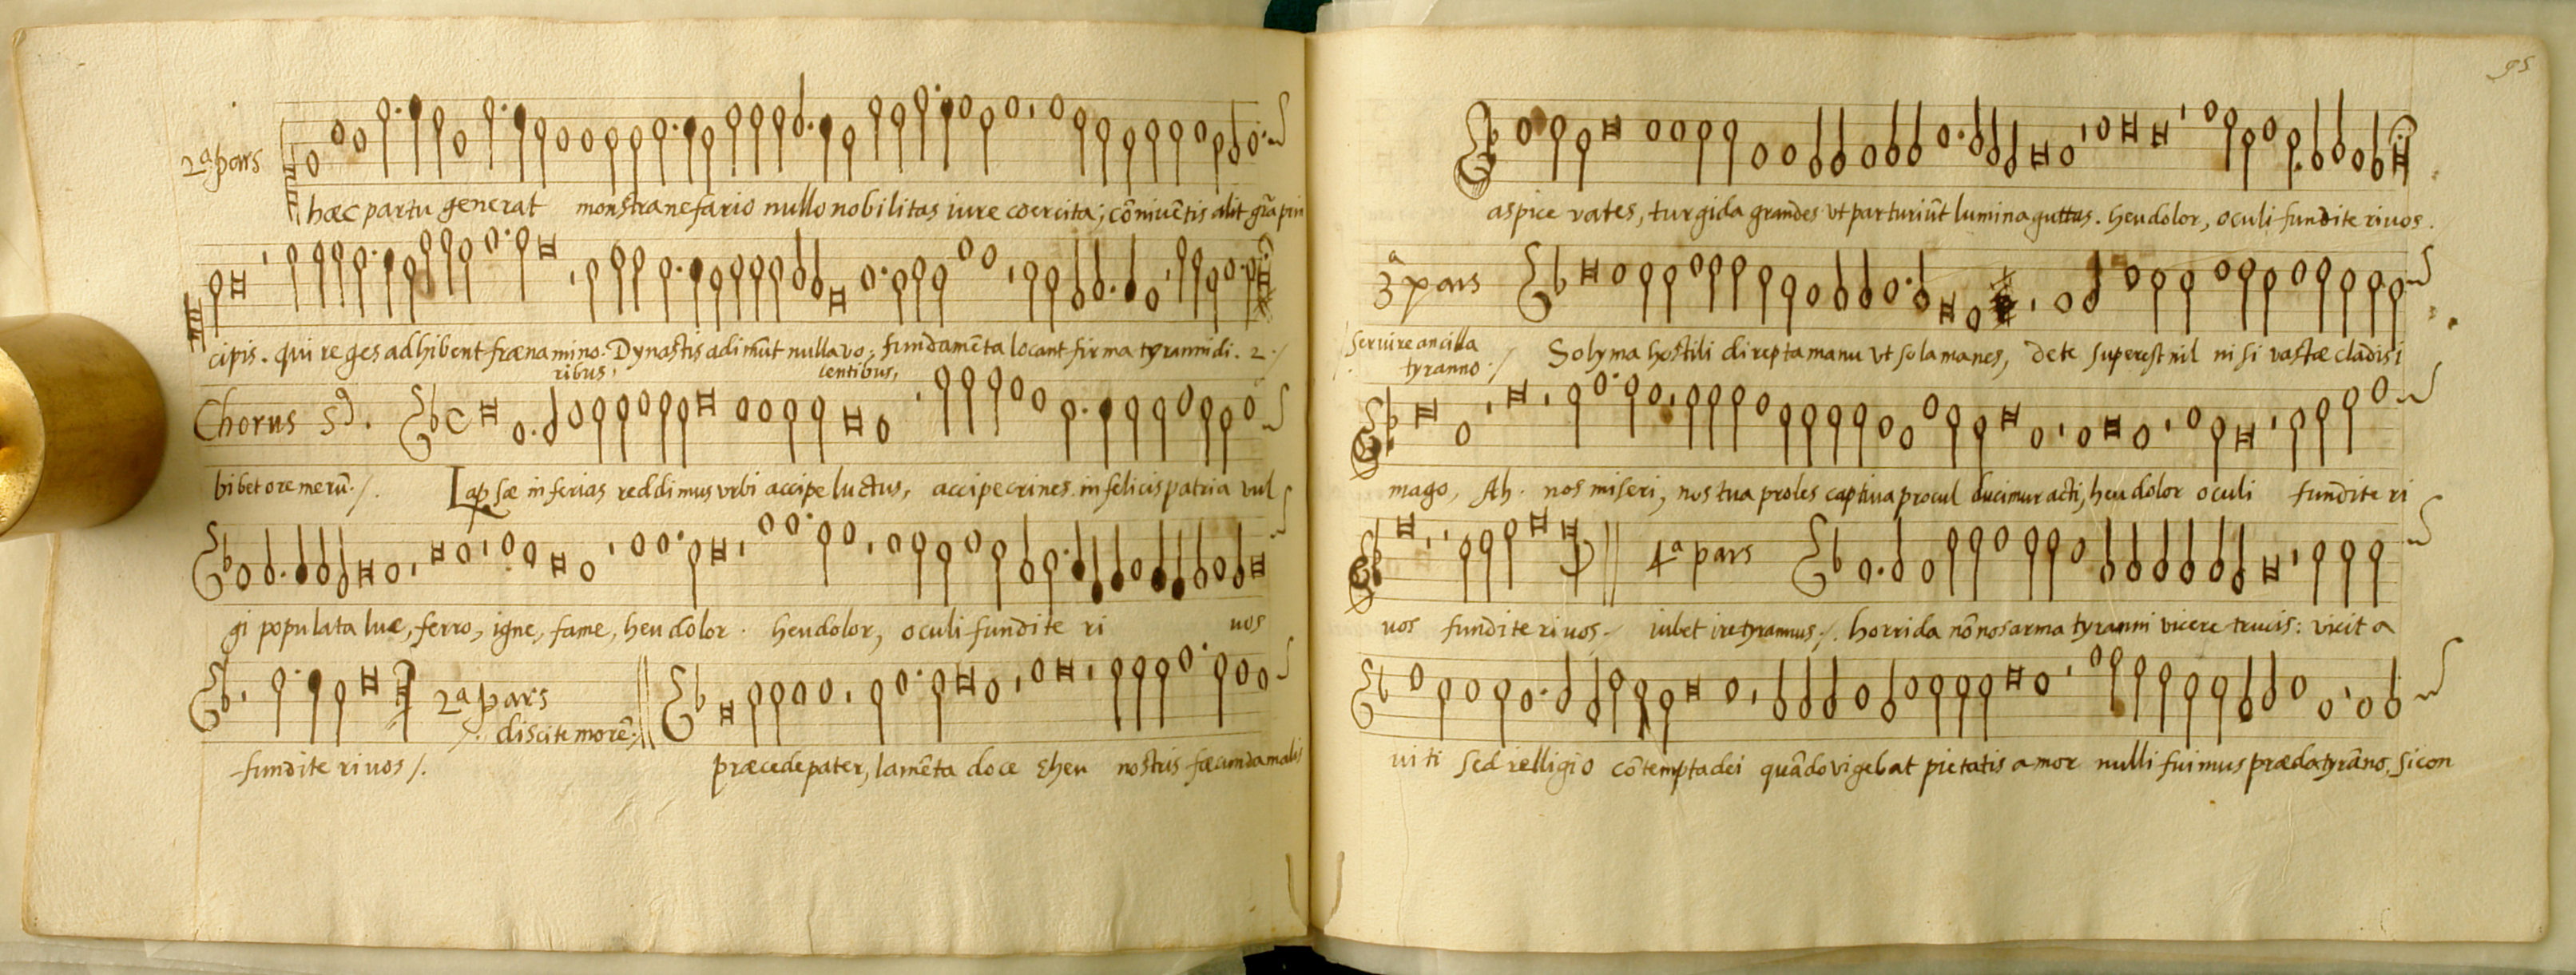 2ª pars
hæc partu generat monstra nefario nullo nobilitas iure coercita; cōniuētis alit gr̄a prin
cipis. qui reges adhibent fræna mino. Dynastis adimūt nulla vo; fundamēta locant firma tyrannidi. 2./
ribus, lentibus,
Chorus 5ꝰ.
bibet ore merū./. Lapsæ inferias reddimus vrbi accipe luctus, accipe crines infelicis patria vul
gi populata lue, ferro, igne, fame, heu dolor. heu dolor, oculi fundite ri uos
2ª pars
/. discite morē./
fundite riuos /. præcede pater, lamēta doce Eheu nostris fæcunda malis
95
aspice vates, turgida grandes vt parturiūt lumina guttas. heu dolor, oculi fundite riuos.
3ª pars
Seruire ancilla
tyranno./ Solyma hostili direpta manu vt sola manes, de te superest nil nisi vastæ cladis i
mago, Ah. nos miseri, nos tua proles captiua procul ducimur acti, heu dolor oculi fundite ri
4ª pars
uos fundite riuos./ iubet ire tyrannus./. horrida nō nos arma tyranni vicere trucis: vicit a
uiti sed relligio cōtempta dei quādo vigebat pietatis amor nulli fuimus præda tyrāno, si con